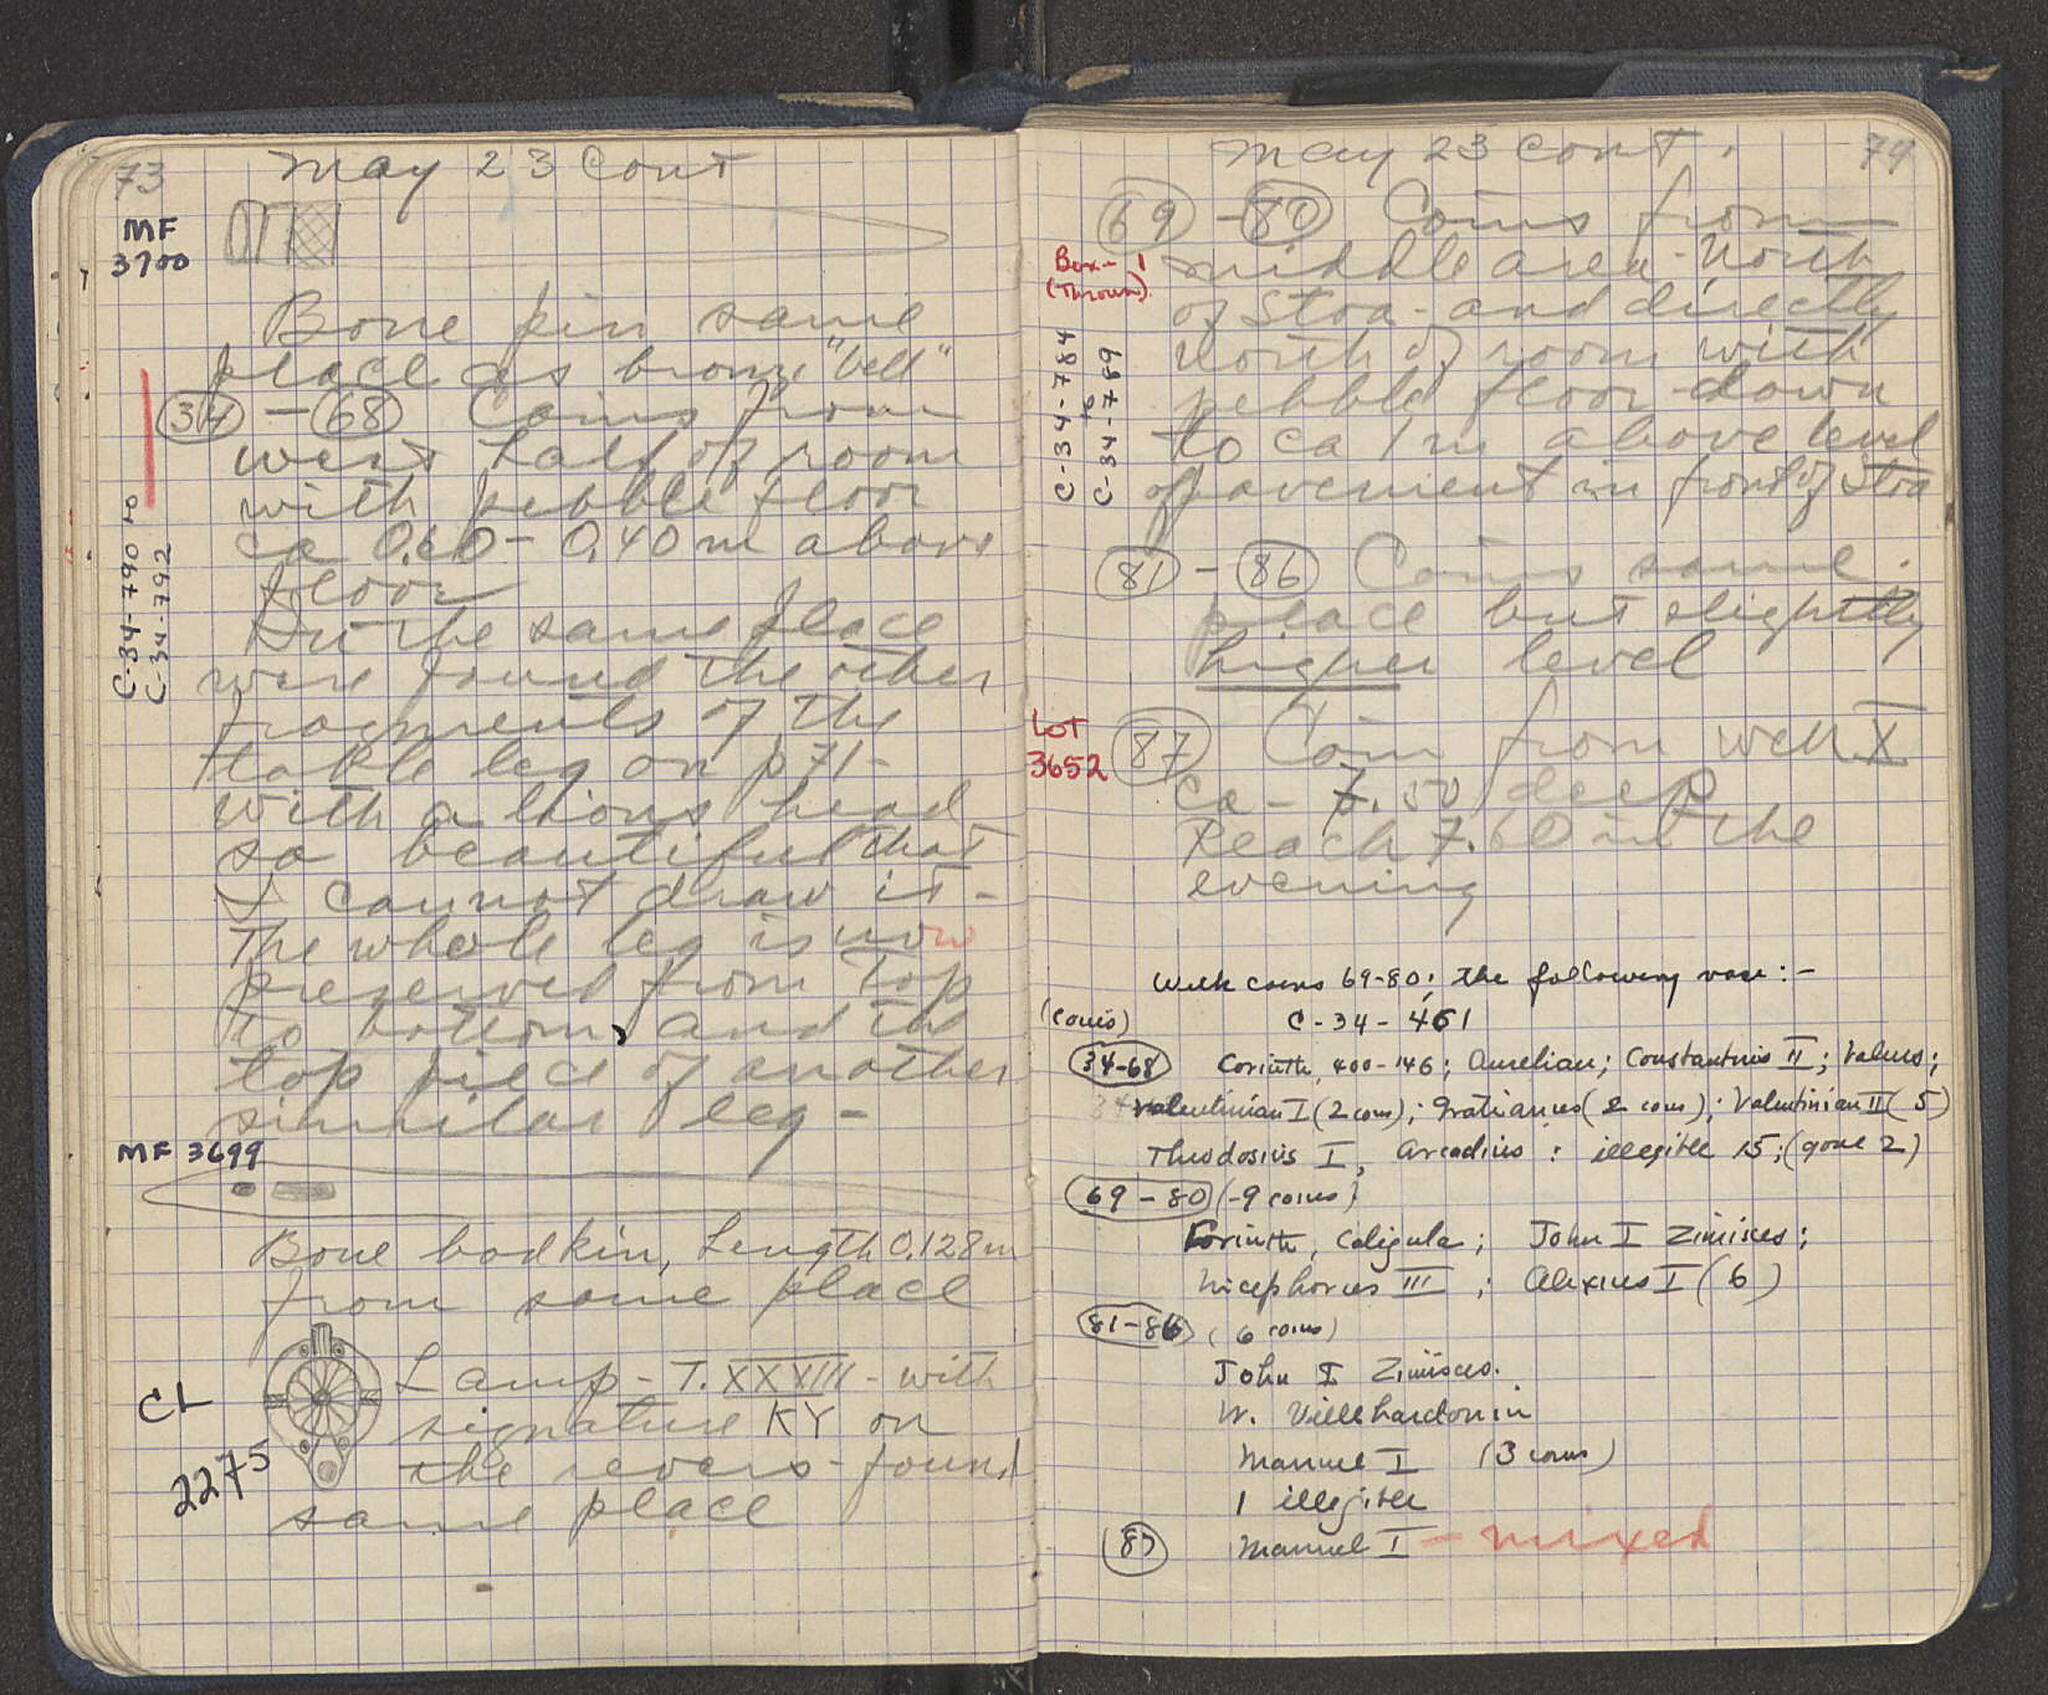 73 May 23 Cont
MF
3700
Bone pin same
place as bronze "bell"
34 - 68 Coins from
west half of room
with pebble floor
ca 0.60 - 0.40 m above
floor
C-34-790 to
C-34-792
In the same place
were found the other
fragments of the
table leg on p 71 -
with a lions head
so beautiful that
I cannot draw it -
The whole leg is now
preserved from top
to bottom, and the
top piece of another
similar leg -
MF 3699
Bone bodkin, Length 0.128m
from same place
CL
2275
Lamp - T. XXVIII - with
signature KY on
the revers - found
same place
May 23 cont. 74
69 - 80 Coins from
Box - 1
(Thrown)
middle area - North
of Stoa - and directly
North of room with
pebble floor - down
to ca 1 m above level
of pavement in front of Stoa
C-34-784
to
C-34-789
81 - 86 Coins same
place but slightly
higher level
Lot
3652
87 Coin from well X
ca - 7.50 deep
Reach 7.60 in the
evening
With coins 69-80; the following vase: -
C-34-461
(coins)
34-68 Corinth, 400-146; Aurelian; Constantius II; Valens;
Valentinian I (2 coins); Gratianus (2 coins); Valentinian II (5)
Theodosius I, Arcadius; illegible 15; (gone 2)
69 - 80 (-9 coins)
Corinth, Caligula; John I Zimisces;
Nicephorus III; Alexius I (6)
81-86 (6 coins)
John I Zimisces.
W. Villehardouin
Manuel I (3 coins)
1 illegible
87 Manuel I - mixed